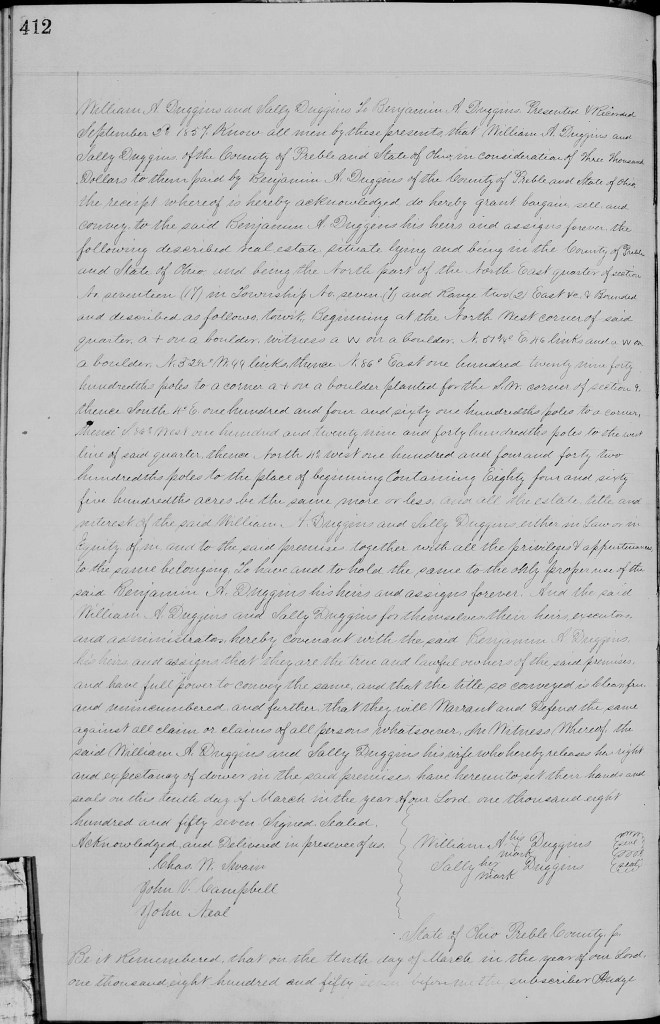 412
William A Duggins and Sally Duggins To Benjamin A Duggins Presented & Recorded
September 2d 1857. Know all men by these presents, that William A. Duggins and
Sally Duggins of the County of Preble and State of Ohio, in consideration of Three Thousand
Dollars to them paid by Benjamin A. Duggins of the County of Preble and State of Ohio
the receipt whereof is hereby acknowledged do hereby grant bargain sell and
convey to the said Benjamin A. Duggins his heirs and assigns forever the
following described real estate situate lying and being in the County of Preble
and State of Ohio and being the North part of the North East quarter of section
No seventeen (17) in Township No. seven (7) and Range two (2) East &c. & Bounded
and described as follows, towit, Beginning at the North West corner of said
quarter, a + on a boulder. witness a W on a boulder. N. 51 E 46 links and a W on
a boulder. N. W. 49 links, thence N. 86° East one hundred twenty nine forty
hundredths poles to a corner a + on a boulder planted for the S.W. corner of section 9.
thence South 4° E. one hundred and four and sixty one hundredths poles to a corner,
thence S. 86° West one hundred and twenty nine and forty hundredths poles to the west
line of said quarter, thence North 4° west one hundred and four and forty two
hundredths poles to the place of beginning Containing Eighty four and sixty
five hundredths acres be the same more or less. and all the estate title and
interest of the said William A Duggins and Sally Duggins either in Law or in
Equity of in and to the said premises together with all the privileges & appurtenances
to the same belonging To have and to hold the same to the only proper use of the
said Benjamin A. Duggins his heirs and assigns forever. And the said
William A Duggins and Sally Duggins for themselves their heirs, executors
and administrators, hereby covenant with the said Benjamin A Duggins
his heirs and assigns that they are the true and lawful owners of the said premises.
and have full power to convey the same, and that the title so conveyed is Clean free
and unincumbered and further, that they will Warrant and Defend the same
against all claim or claims of all persons whatsoever. In Witness Whereof the
said William A. Duggins and Sally Duggins his wife who hereby releases her right
and expectancy of dower in the said premises have hereunto set their hands and
seals on this tenth day of March in the year of our Lord one thousand eight
hundred and fifty seven Signed Sealed.
Acknowledged and Delivered in presence of us.
Chas. W. Swain
John V. Campbell
John Neal
William A. his mark Duggins seal
Sally her mark Duggins seal
State of Ohio Preble County ss
Be it Remembered, that on the tenth day of March in the year of our Lord.
one thousand eight hundred and fifty seven before me the subscriber Judge